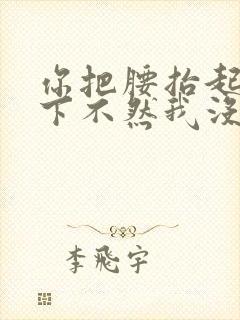 你把腰抬起
下不然我没
李飛宇